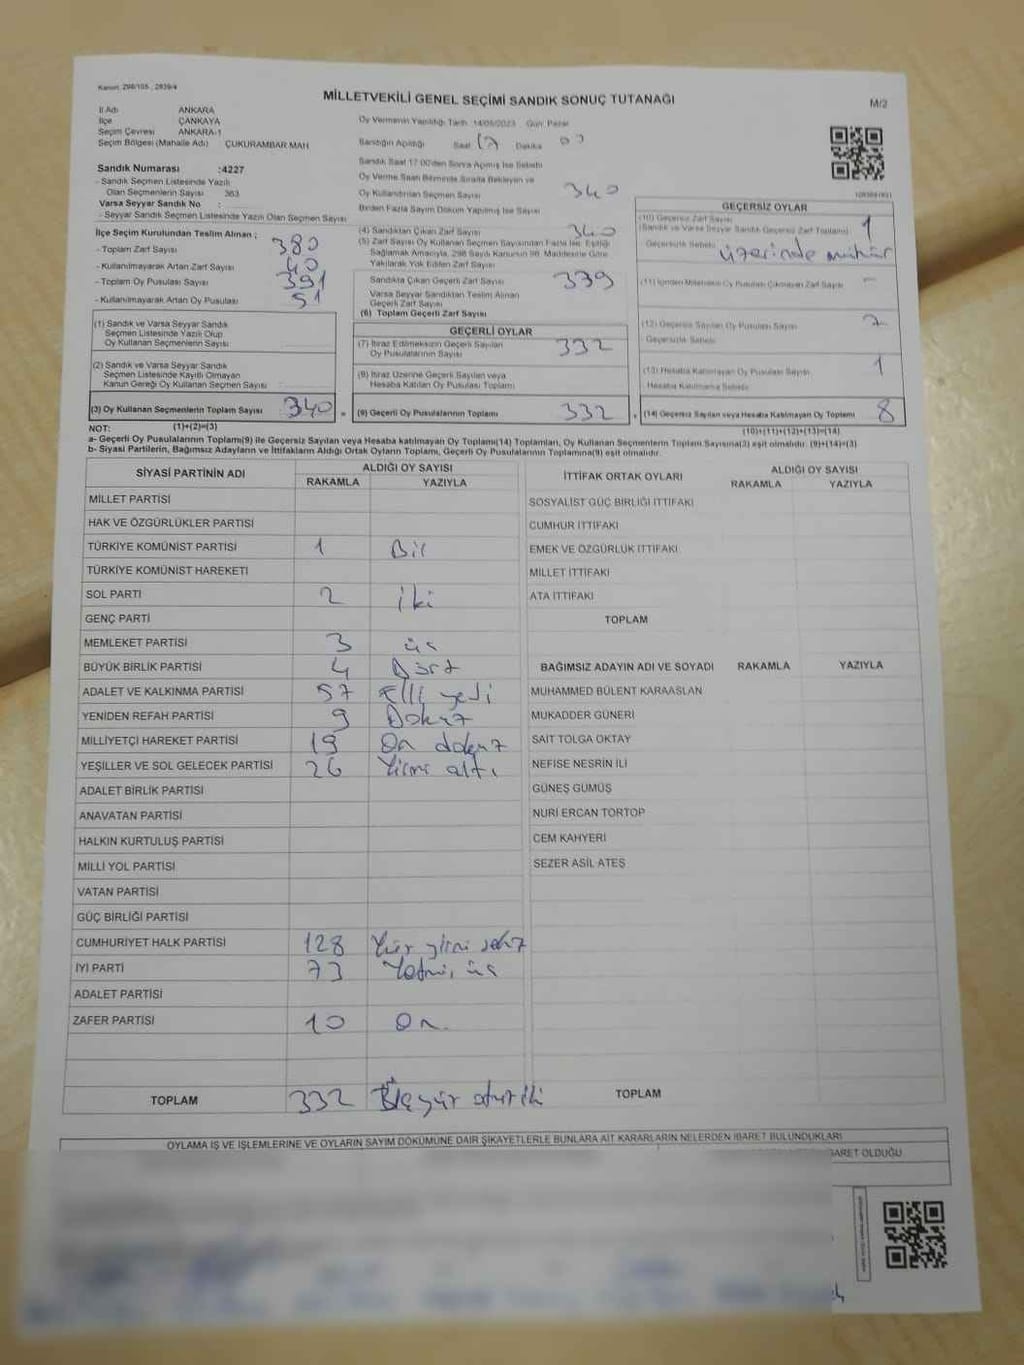 Kanun: 298/105 , 2839/4
MİLLETVEKİLİ GENEL SEÇİMİ SANDIK SONUÇ TUTANAĞI
M/2
İl Adı ANKARA
İlçe ÇANKAYA
Seçim Çevresi ANKARA-1
Seçim Bölgesi (Mahalle Adı) ÇUKURAMBAR MAH
Sandık Numarası :4227
- Sandık Seçmen Listesinde Yazılı
Olan Seçmenlerin Sayısı 363
Varsa Seyyar Sandık No :
- Seyyar Sandık Seçmen Listesinde Yazılı Olan Seçmen Sayısı
İlçe Seçim Kurulundan Teslim Alınan ;
- Toplam Zarf Sayısı 380
- Kullanılmayarak Artan Zarf Sayısı 40
- Toplam Oy Pusulası Sayısı 391
- Kullanılmayarak Artan Oy Pusulası 51
(1) Sandık ve Varsa Seyyar Sandık
Seçmen Listesinde Yazılı Olup
Oy Kullanan Seçmenlerin Sayısı
(2) Sandık ve Varsa Seyyar Sandık
Seçmen Listesinde Kayıtlı Olmayan
Kanun Gereği Oy Kullanan Seçmen Sayısı
(3) Oy Kullanan Seçmenlerin Toplam Sayısı 340 =
(1)+(2)=(3)
Oy Vermenin Yapıldığı Tarih 14/05/2023 Gün: Pazar
Sandığın Açıldığı Saat 17 Dakika
Sandık Saat 17:00'den Sonra Açılmış İse Sebebi
Oy Verme Saati Bitiminde Sırada Bekleyen ve
Oy Kullandırılan Seçmen Sayısı 340
Birden Fazla Sayım Döküm Yapılmış İse Sayısı
(4) Sandıktan Çıkan Zarf Sayısı 340
(5) Zarf Sayısı Oy Kullanan Seçmen Sayısından Fazla İse, Eşitliği
Sağlamak Amacıyla, 298 Sayılı Kanunun 98. Maddesine Göre
Yakılarak Yok Edilen Zarf Sayısı
Sandıkta Çıkan Geçerli Zarf Sayısı 339
Varsa Seyyar Sandıktan Teslim Alınan
Geçerli Zarf Sayısı
(6) Toplam Geçerli Zarf Sayısı
GEÇERLİ OYLAR
(7) İtiraz Edilmeksizin Geçerli Sayılan
Oy Pusulalarının Sayısı 332
(8) İtiraz Üzerine Geçerli Sayılan veya
Hesaba Katılan Oy Pusulası Toplamı
(9) Geçerli Oy Pusulalarının Toplamı 332
GEÇERSİZ OYLAR
(10) Geçersiz Zarf Sayısı
(Sandık ve Varsa Seyyar Sandık Geçersiz Zarf Toplamı) 1
Geçersizlik Sebebi: üzerinde mühür
(11) İçinden Milletvekili Oy Pusulası Çıkmayan Zarf Sayısı -
(12) Geçersiz Sayılan Oy Pusulası Sayısı 7
Geçersizlik Sebebi:
(13) Hesaba Katılmayan Oy Pusulası Sayısı 1
Hesaba Katılmama Sebebi:
(14) Geçersiz Sayılan veya Hesaba Katılmayan Oy Toplamı 8
(10)+(11)+(12)+(13)=(14)
NOT:
a- Geçerli Oy Pusulalarının Toplamı(9) ile Geçersiz Sayılan veya Hesaba katılmayan Oy Toplamı(14) Toplamları, Oy Kullanan Seçmenlerin Toplam Sayısına(3) eşit olmalıdır. (9)+(14)=(3)
b- Siyasi Partilerin, Bağımsız Adayların ve İttifakların Aldığı Ortak Oyların Toplamı, Geçerli Oy Pusulalarının Toplamına(9) eşit olmalıdır.
SİYASİ PARTİNİN ADI ALDIĞI OY SAYISI
RAKAMLA YAZIYLA
MİLLET PARTİSİ
HAK VE ÖZGÜRLÜKLER PARTİSİ
TÜRKİYE KOMÜNİST PARTİSİ 1 Bir
TÜRKİYE KOMÜNİST HAREKETİ
SOL PARTİ 2 iki
GENÇ PARTİ
MEMLEKET PARTİSİ 3 üç
BÜYÜK BİRLİK PARTİSİ 4 Dört
ADALET VE KALKINMA PARTİSİ 57 Elli yedi
YENİDEN REFAH PARTİSİ 9 Dokuz
MİLLİYETÇİ HAREKET PARTİSİ 19 On dokuz
YEŞİLLER VE SOL GELECEK PARTİSİ 26 Yirmi altı
ADALET BİRLİK PARTİSİ
ANAVATAN PARTİSİ
HALKIN KURTULUŞ PARTİSİ
MİLLİ YOL PARTİSİ
VATAN PARTİSİ
GÜÇ BİRLİĞİ PARTİSİ
CUMHURİYET HALK PARTİSİ 128 Yüz yirmi sekiz
İYİ PARTİ 73 Yetmiş üç
ADALET PARTİSİ
ZAFER PARTİSİ 10 On
TOPLAM 332 Üçyüz otuz iki
İTTİFAK ORTAK OYLARI ALDIĞI OY SAYISI
RAKAMLA YAZIYLA
SOSYALİST GÜÇ BİRLİĞİ İTTİFAKI
CUMHUR İTTİFAKI
EMEK VE ÖZGÜRLÜK İTTİFAKI
MİLLET İTTİFAKI
ATA İTTİFAKI
TOPLAM
BAĞIMSIZ ADAYIN ADI VE SOYADI RAKAMLA YAZIYLA
MUHAMMED BÜLENT KARAASLAN
MUKADDER GÜNERİ
SAİT TOLGA OKTAY
NEFİSE NESRİN İLİ
GÜNEŞ GÜMÜŞ
NURİ ERCAN TORTOP
CEM KAHYERİ
SEZER ASİL ATEŞ
TOPLAM
OYLAMA İŞ VE İŞLEMLERİNE VE OYLARIN SAYIM DÖKÜMÜNE DAİR ŞİKAYETLERLE BUNLARA AİT KARARLARIN NELERDEN İBARET BULUNDUKLARI
BARET OLDUĞU